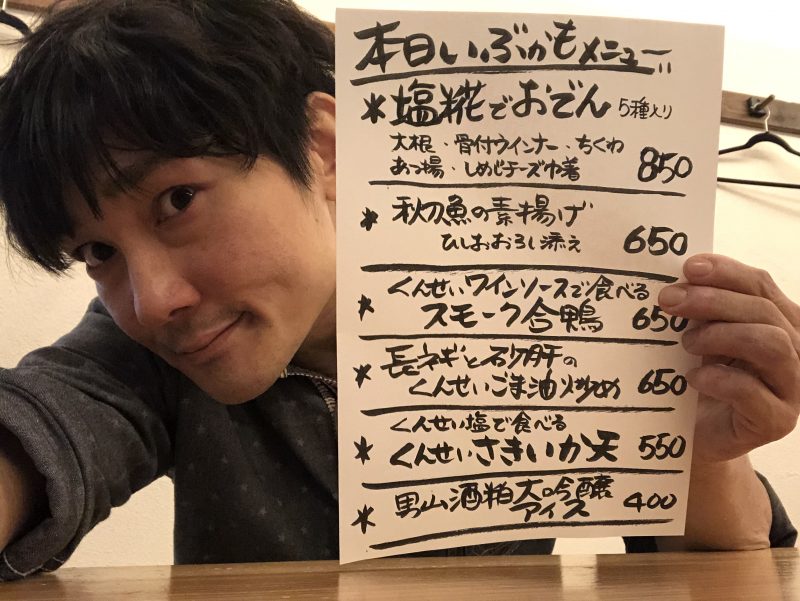 本日いぶかもメニュー
＊塩糀でおでん 5種入り
大根・骨付ウインナー・ちくわ
あつ揚・しめじチーズ巾着 850
＊秋刀魚の素揚げ
ひしおおろし添え 650
くんせいワインソースで食べる
＊スモーク合鴨 650
＊長ネギと砂肝の
くんせいごま油炒め 650
くんせい塩で食べる
＊くんせいさきいか天 550
＊男山酒粕大吟醸
アイス 400